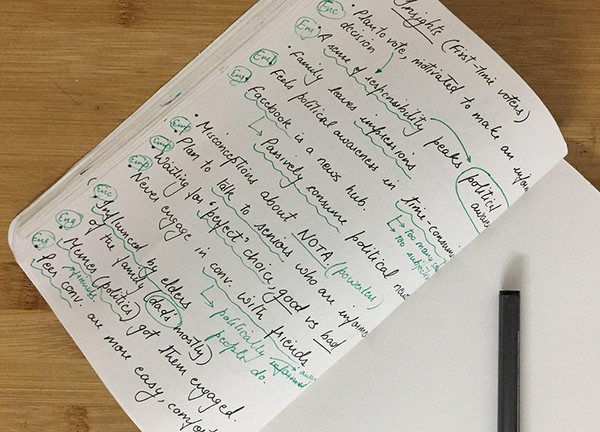 Insights (First-time voters)
Enc • Plan to vote, motivated to make an inform
decision
Enc • A sense of responsibility peaks political
awar
• Family leaves impressions
Enc • Feels political awareness in time-consum
→ too many
→ too subject
Enc • Facebook is a news hub.
→ Passively consume political new
• Misconceptions about NOTA (powerless)
Enc • Plan to talk to seniors who are informe
Enc • Waiting for 'perfect' choice, good vs bad
Enc • Never engage in conv. with friends
→ politically informed
people do.
Enc • Influenced by elders
of the family (dad's mostly)
Eng • Memes (politics) got them engaged.
Enc Peer conv. are more easy, comfo